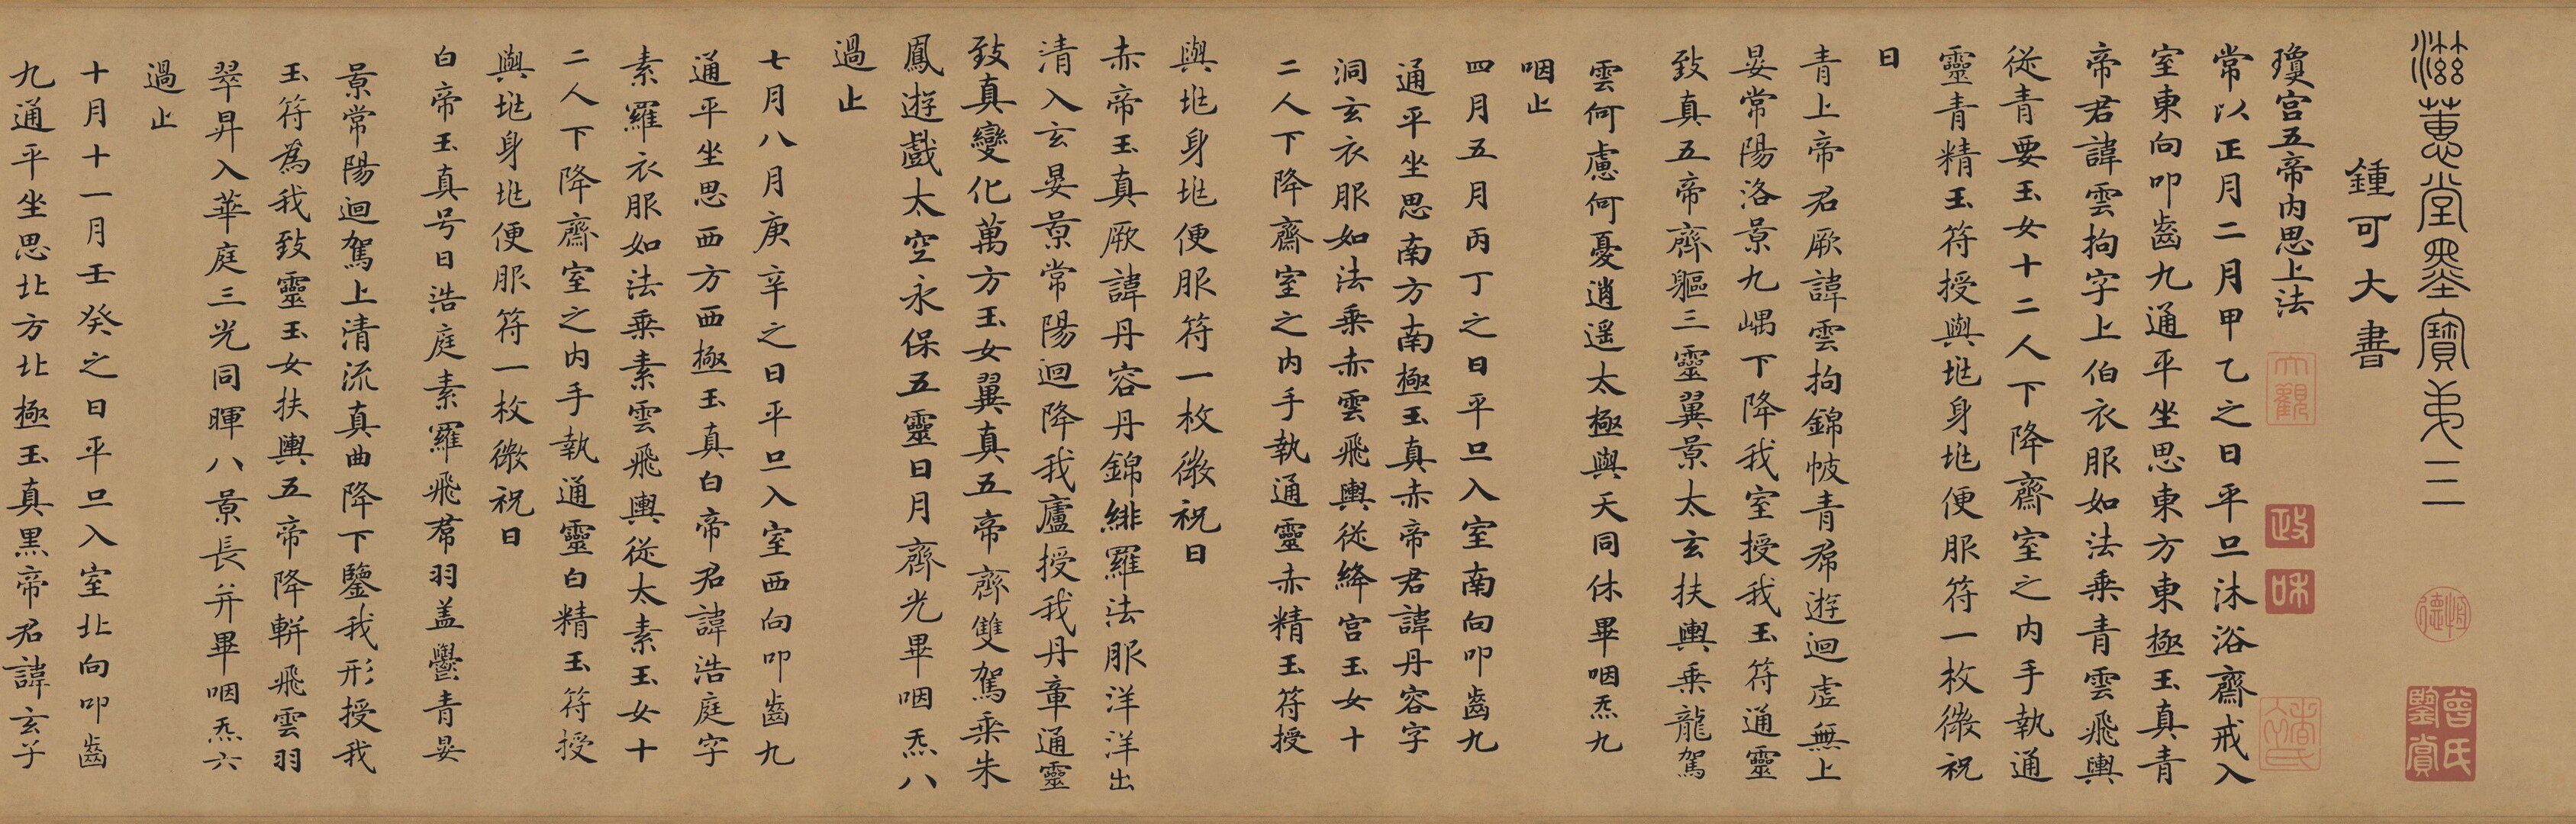 滋蕙堂墨寶弟三
鍾可大書
瓊宮五帝內思上法
常以正月二月甲乙之日平旦沐浴齋戒入
室東向叩齒九通平坐思東方東極玉真青
帝君諱雲拘字上伯衣服如法乘青雲飛輿
從青要玉女十二人下降齋室之內手執通
靈青精玉符授與兆身兆便服符一枚微祝
曰
青上帝君厥諱雲拘錦帔青帬遊迴虛無上
晏常陽洛景九嵎下降我室授我玉符通靈
致真五帝齊軀三靈翼景太玄扶輿乘龍駕
雲何慮何憂逍遙太極與天同休畢咽炁九
咽止
四月五月丙丁之日平旦入室南向叩齒九
通平坐思南方南極玉真赤帝君諱丹容字
洞玄衣服如法乘赤雲飛輿從絳宮玉女十
二人下降齋室之內手執通靈赤精玉符授
與兆身兆便服符一枚微祝曰
赤帝玉真厥諱丹容丹錦緋羅法服洋洋出
清入玄晏景常陽迴降我廬授我丹章通靈
致真變化萬方玉女翼真五帝齊雙駕乘朱
鳳遊戲太空永保五靈日月齊光畢咽炁八
過止
七月八月庚辛之日平旦入室西向叩齒九
通平坐思西方西極玉真白帝君諱浩庭字
素羅衣服如法乘素雲飛輿從太素玉女十
二人下降齋室之內手執通靈白精玉符授
與兆身兆便服符一枚微祝曰
白帝玉真号曰浩庭素羅飛帬羽盖鬱青晏
景常陽迴駕上清流真曲降下鑒我形授我
玉符為我致靈玉女扶輿五帝降軿飛雲羽
翠昇入華庭三光同暉八景長并畢咽炁六
過止
十月十一月壬癸之日平旦入室北向叩齒
九通平坐思北方北極玉真黑帝君諱玄子
大觀
政
和
曾氏鑒賞